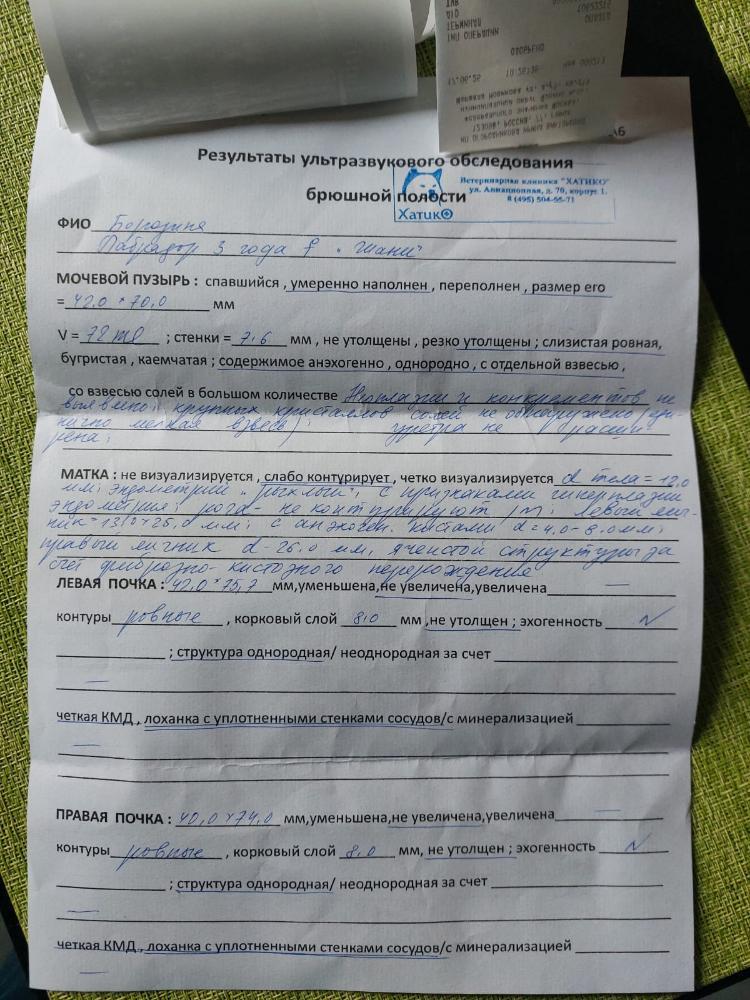 Результаты ультразвукового обследования
брюшной полости
Ветеринарная клиника "ХАТИКО"
ул. Авиационная, д. 70, корпус 1.
8 (495) 504-55-71
Хатико
ФИО
Лабрадор 3 года f. "Шани"
МОЧЕВОЙ ПУЗЫРЬ : спавшийся , умеренно наполнен , переполнен , размер его
= 42,0 × 70,0 мм
V = 72 ml ; стенки = 7,6 мм , не утолщены , резко утолщены ; слизистая ровная,
бугристая , каемчатая ; содержимое анэхогенно , однородно , с отдельной взвесью ,
со взвесью солей в большом количестве Неоплазии и конкрементов не
выявлено; крупных кристаллов солей не обнаружено (еди-
нично мелкая взвесь); уретра не расши-
рена;
МАТКА : не визуализируется , слабо контурирует , четко визуализируется d тела = 12,0
мм; эндометрий "рыхлый"; с признаками гиперплазии
эндометрия; рога - не контурируют ; Левый яич-
ник = 13,0 × 25,0 мм; с анэхоген. кистами d = 4,0 - 8,0 мм;
правый яичник d - 26,0 мм, ячеистой структуры за
счёт фиброзно-кистозного перерождения
ЛЕВАЯ ПОЧКА : 42,0 × 75,7 мм,уменьшена,не увеличена,увеличена —
контуры ровные , корковый слой 8,0 мм ,не утолщен ; эхогенность N
; структура однородная/ неоднородная за счет
—
четкая КМД , лоханка с уплотненными стенками сосудов/с минерализацией
—
ПРАВАЯ ПОЧКА : 40,0 × 74,0 мм,уменьшена,не увеличена,увеличена —
контуры ровные , корковый слой 8,0 мм, не утолщен ; эхогенность N
; структура однородная/ неоднородная за счет
—
четкая КМД , лоханка с уплотненными стенками сосудов/с минерализацией
—